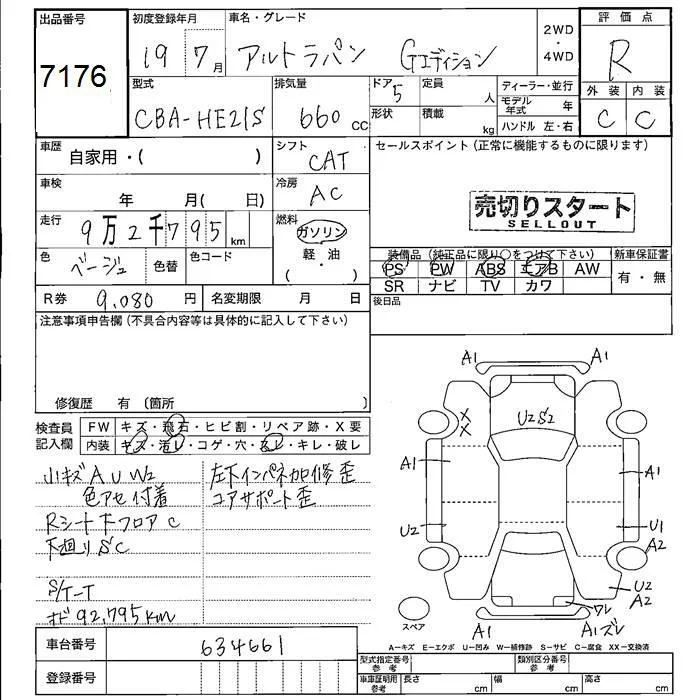 出品番号
7176
初度登録年月
19 7月
車名・グレード
アルトラパン Gエディション
2WD
・
4WD
評価点
R
外装 内装
C C
型式
CBA-HE21S
排気量
660 cc
ドア
5
形状
定員
人
積載
kg
ディーラー・並行
モデル年式 年
ハンドル 左・右
車歴
自家用・( )
シフト
CAT
セールスポイント (正常に機能するものに限ります)
車検
年 月( 日)
冷房
AC
売切りスタート
SELLOUT
走行
9万2千795km
燃料
ガソリン
軽・油
・
( )
色
ベージュ
色替
色コード
装備品 (純正品に限り○をつけて下さい)
PS PW ABS エアB AW
SR ナビ TV カワ
新車保証書
有・無
R券 9,080 円
名変期限 月 日
後日品
注意事項申告欄 (不具合内容等は具体的に記入して下さい)
修復歴 有 〔箇所 〕
検査員
記入欄
FW キズ・飛石・ヒビ割・リペア跡・X要
内装 キズ・汚レ・コゲ・穴・ヌレ・キレ・破レ
小キズ A U W2
色アセ 付着
Rシート下フロア C
下廻り S C
S/T-T
オド 92,795km
左下インパネカロ修 歪
コアサポート 歪
A1 A1
U2 S2
X
X
A1 A1
U2 U1
A2
U2
A2
ワレ
A1 A1ズレ
スペア
車台番号 634661
登録番号
A−キズ E−エクボ U−凹み W−補修跡 S−サビ C−腐食 XX−交換済
型式指定番号
参考
類別区分番号
参考
車庫証明用
参考
長さ cm
幅 cm
高さ cm